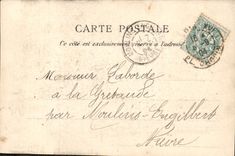 CARTE POSTALE
Ce côté est exclusivement réservé à l'adresse
Monsieur Laborde
à la
par Moulins-Engilbert
Nièvre